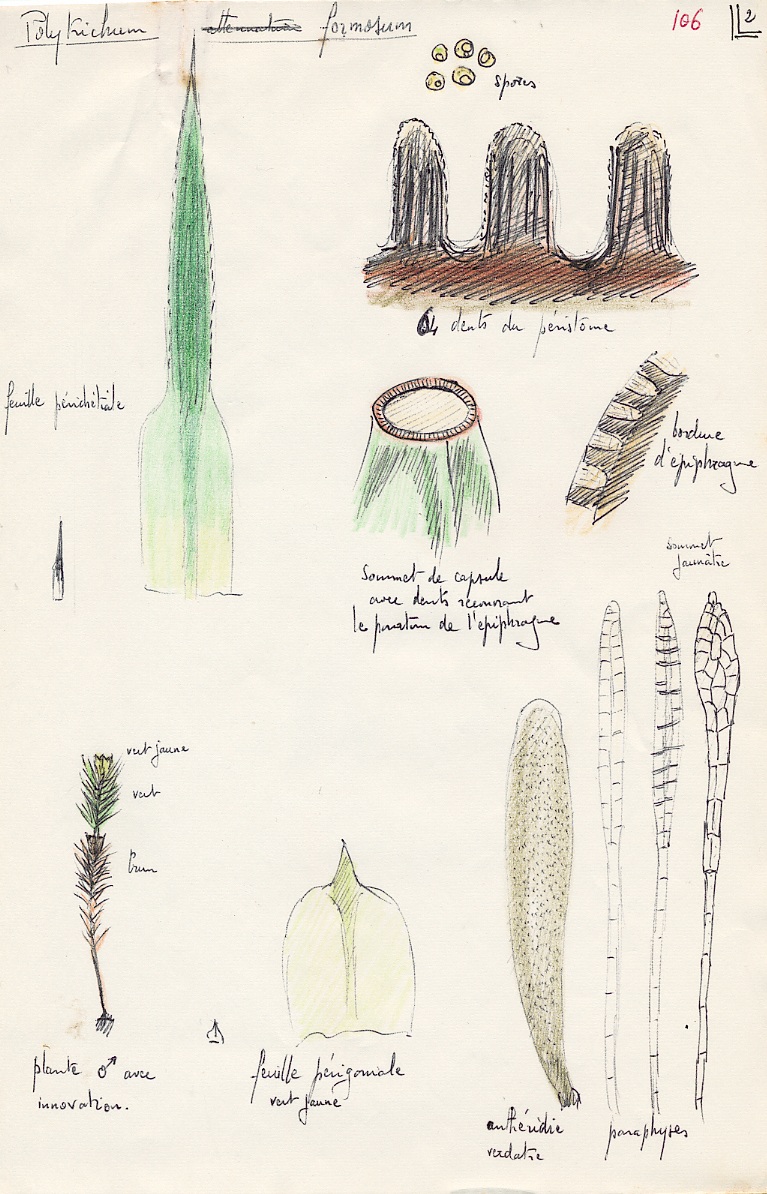 Polytrichum attenuatum formosum
106
2
spores
64 dents du péristome
feuille périchétiale
bordure
d'épiphragme
Sommet de capsule
avec dents recouvrant
le pourtour de l'épiphragme
sommet
jaunâtre
vert jaune
vert
brun
plante ♂ avec
innovation.
feuille périgoniale
vert jaune
anthéridie
verdatre
paraphyses